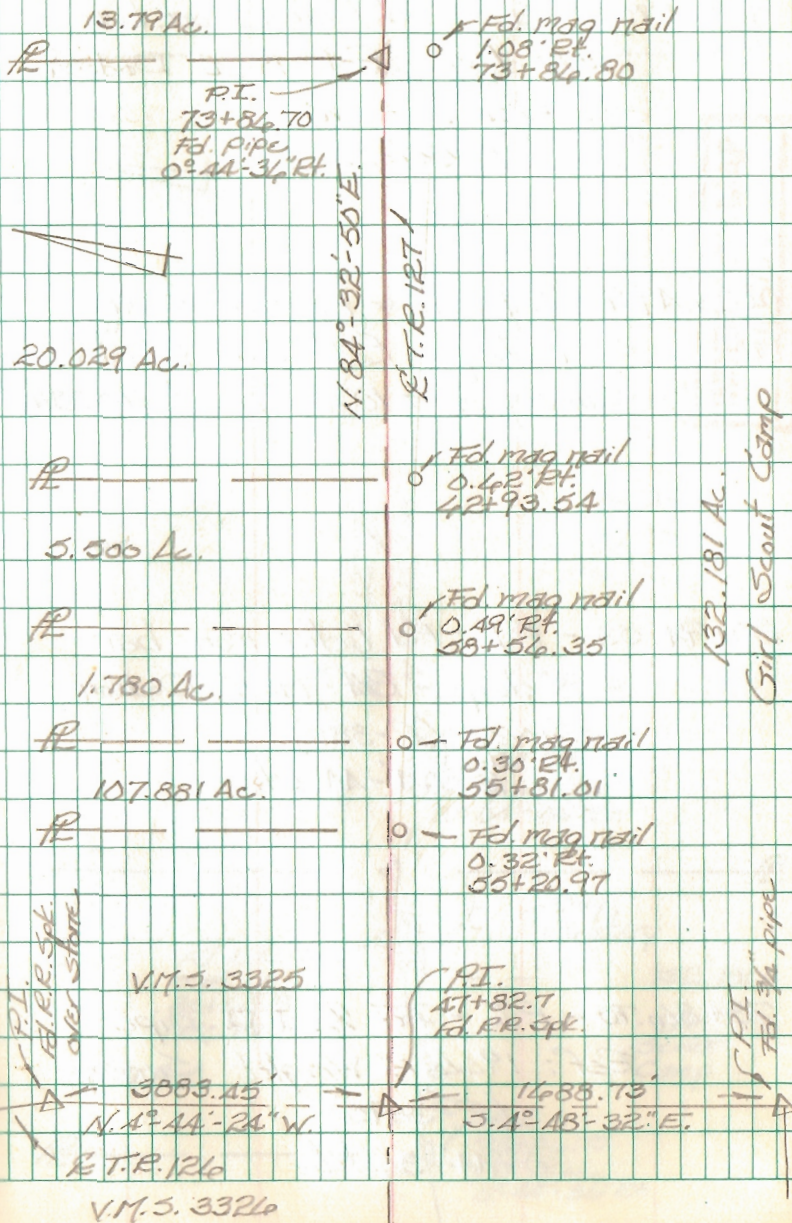 13.79 Ac.
PL
Fd. mag nail
1.08' Rt.
73+86.80
P.I.
73+86.70
Fd. Pipe
0°-44'-36" Rt.
N. 84°-32'-50" E.
℄ T.R. 127
20.029 Ac.
PL
Fd. mag nail
0.62' Rt.
62+93.54
5.500 Ac.
132.181 Ac.
Girl Scout Camp
PL
Fd. mag nail
0.49' Rt.
58+56.35
1.780 Ac.
PL
Fd. mag nail
0.30' Rt.
55+81.01
107.881 Ac.
PL
Fd. mag nail
0.32' Rt.
55+20.97
P.I.
Fd. R.R. Spk.
over stone
V.M.S. 3325
P.I.
47+82.7
Fd. R.R. Spk.
P.I.
Fd. 3/4" pipe
3883.45'
N. 4°-44'-24" W.
1688.73'
S. 4°-48'-32" E.
℄ T.R. 126
V.M.S. 3326